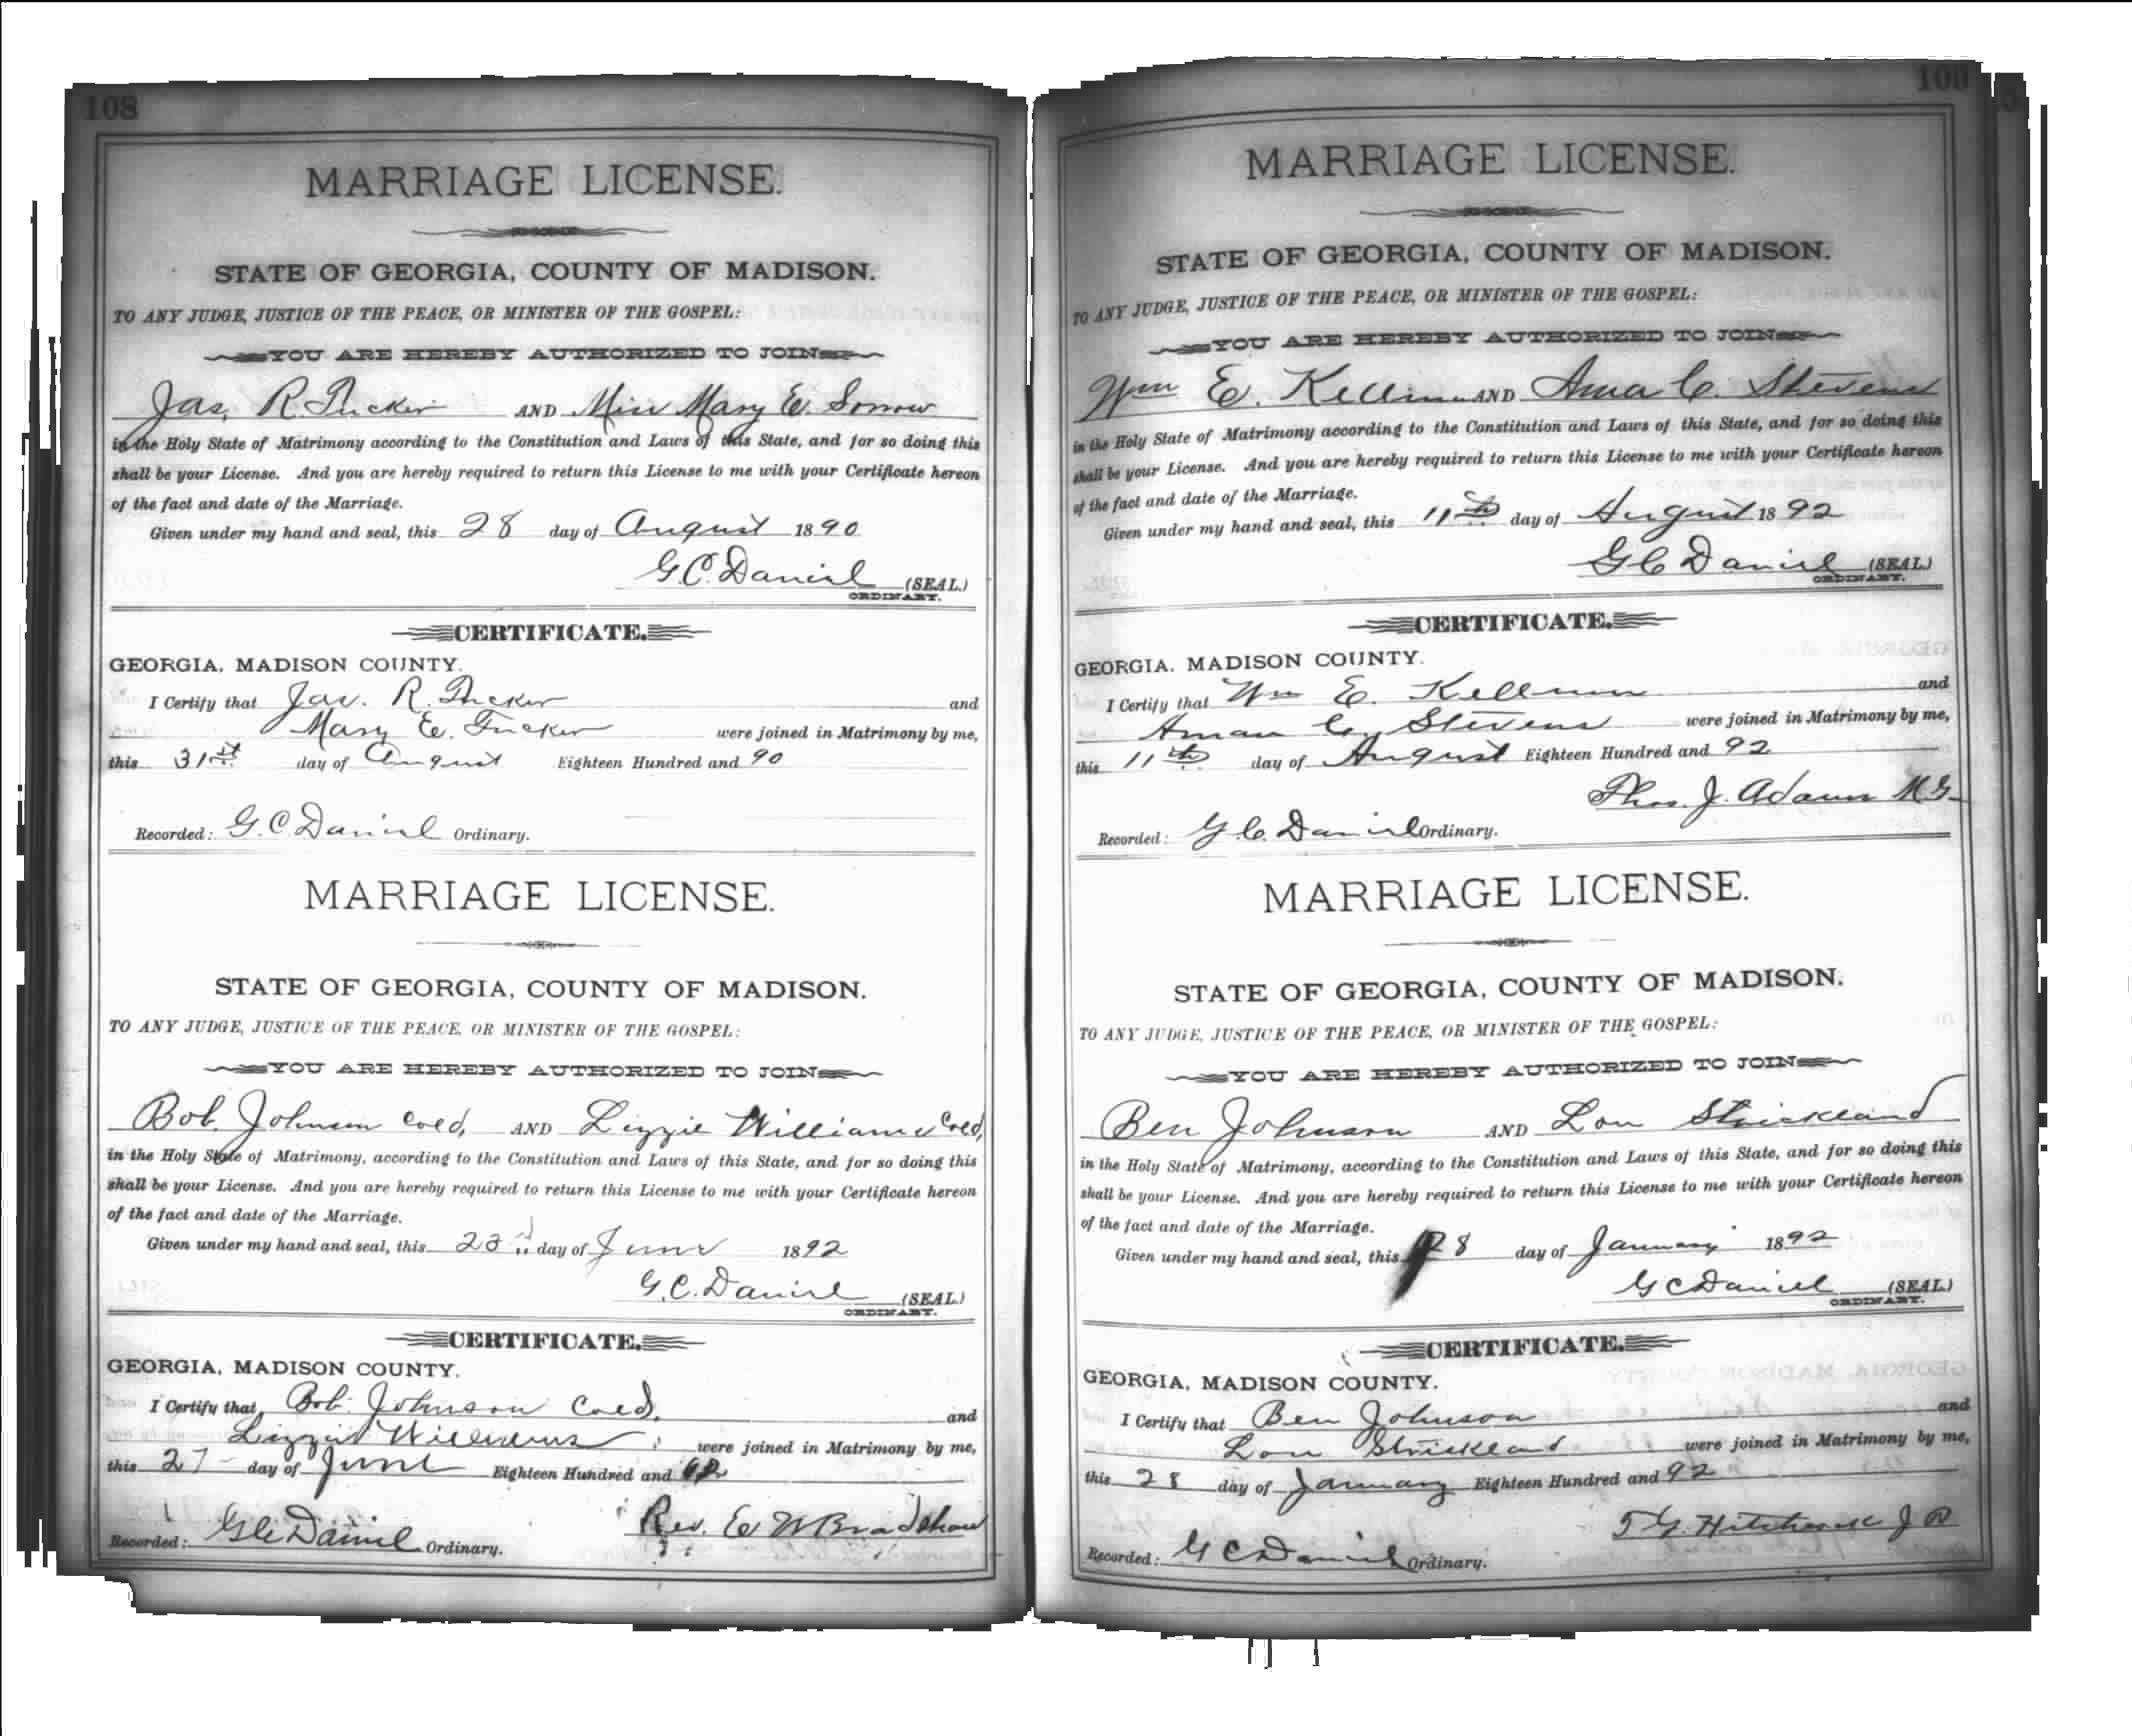 108
MARRIAGE LICENSE.
STATE OF GEORGIA, COUNTY OF MADISON.
TO ANY JUDGE, JUSTICE OF THE PEACE, OR MINISTER OF THE GOSPEL:
YOU ARE HEREBY AUTHORIZED TO JOIN
Jas. R. Tucker AND Miss Mary E. Sorrow
in the Holy State of Matrimony according to the Constitution and Laws of this State, and for so doing this
shall be your License. And you are hereby required to return this License to me with your Certificate hereon
of the fact and date of the Marriage.
Given under my hand and seal, this 28 day of August 1890
G. C. Daniel (SEAL.)
ORDINARY.
CERTIFICATE.
GEORGIA, MADISON COUNTY.
I Certify that Jas. R. Tucker and
Mary E. Tucker were joined in Matrimony by me,
this 31st day of August Eighteen Hundred and 90
Recorded: G. C. Daniel Ordinary.
MARRIAGE LICENSE.
STATE OF GEORGIA, COUNTY OF MADISON.
TO ANY JUDGE, JUSTICE OF THE PEACE, OR MINISTER OF THE GOSPEL:
YOU ARE HEREBY AUTHORIZED TO JOIN
Bob. Johnson Cold, AND Lizzie Williams Cold,
in the Holy State of Matrimony, according to the Constitution and Laws of this State, and for so doing this
shall be your License. And you are hereby required to return this License to me with your Certificate hereon
of the fact and date of the Marriage.
Given under my hand and seal, this day of June 1892
G. C. Daniel (SEAL.)
ORDINARY.
CERTIFICATE.
GEORGIA, MADISON COUNTY.
I Certify that Bob. Johnson Cold, and
Lizzie Williams were joined in Matrimony by me,
this 27 day of June Eighteen Hundred and 92
Rev. E W Bradshaw
Recorded: G C Daniel Ordinary.
109
MARRIAGE LICENSE.
STATE OF GEORGIA, COUNTY OF MADISON.
TO ANY JUDGE, JUSTICE OF THE PEACE, OR MINISTER OF THE GOSPEL:
YOU ARE HEREBY AUTHORIZED TO JOIN
Wm E. Kellum AND Ama C. Stevens
in the Holy State of Matrimony according to the Constitution and Laws of this State, and for so doing this
shall be your License. And you are hereby required to return this License to me with your Certificate hereon
of the fact and date of the Marriage.
Given under my hand and seal, this 11th day of August 1892
G C Daniel (SEAL.)
ORDINARY.
CERTIFICATE.
GEORGIA, MADISON COUNTY.
I Certify that Wm E. Kellum and
Aman C. Stevens were joined in Matrimony by me,
this 11th day of August Eighteen Hundred and 92
Thos. J. Adams M.G.
Recorded: G. C. Daniel Ordinary.
MARRIAGE LICENSE.
STATE OF GEORGIA, COUNTY OF MADISON.
TO ANY JUDGE, JUSTICE OF THE PEACE, OR MINISTER OF THE GOSPEL:
YOU ARE HEREBY AUTHORIZED TO JOIN
Ben Johnson AND Lou Strickland
in the Holy State of Matrimony, according to the Constitution and Laws of this State, and for so doing this
shall be your License. And you are hereby required to return this License to me with your Certificate hereon
of the fact and date of the Marriage.
Given under my hand and seal, this 28 day of January 1892
G C Daniel (SEAL.)
ORDINARY.
CERTIFICATE.
GEORGIA, MADISON COUNTY.
I Certify that Ben Johnson and
Lou Strickland were joined in Matrimony by me,
this 28 day of January Eighteen Hundred and 92
T. G. Hitchcock J P
Recorded: G C Daniel Ordinary.